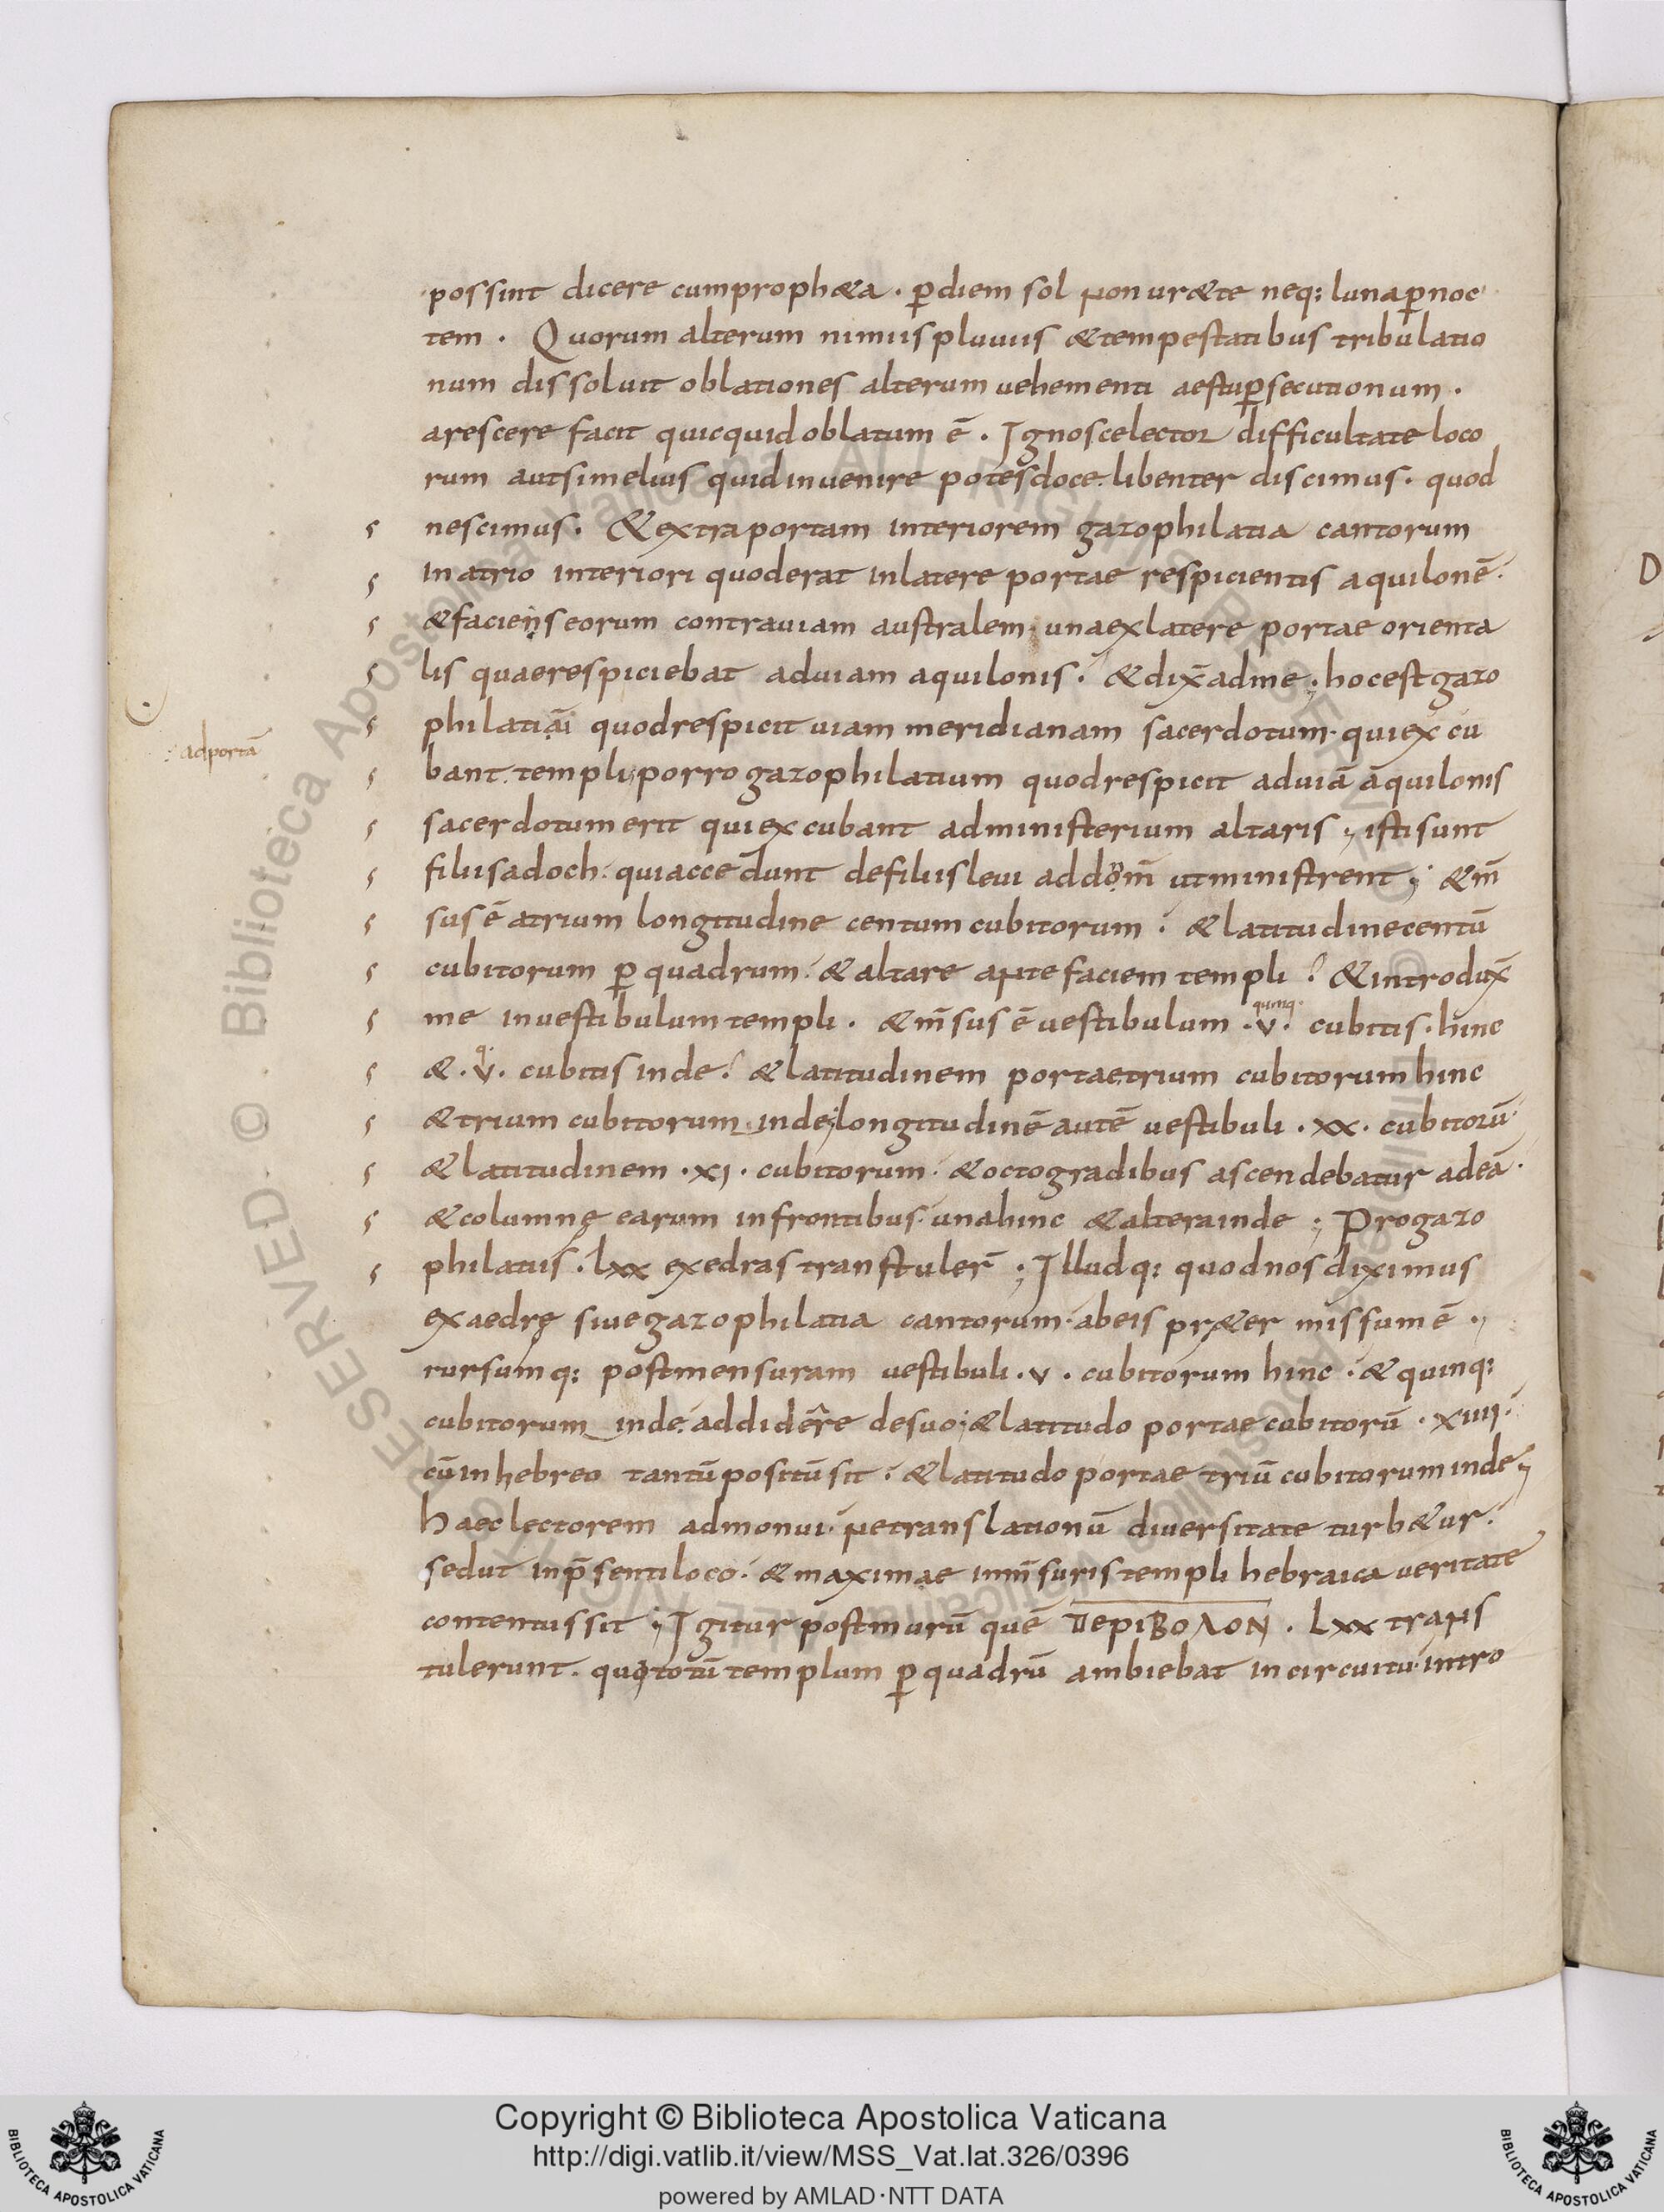 possint dicere cumproph&a · ꝑdiem sol non ur&te neq: luna ꝑ noc
tem · Quorum alterum nimiis pluuiis &tempestatibus tribulatio
num dissoluit oblationes alterum uehementi aestu ꝑsecutionum ·
arescere facit quicquid oblatum ē · Ignosce lector difficultate loco
rum aut si melius quid inuenire potes doce. libenter discimus · quod
nescimus · & extra portam interiorem gazophilatia cantorum
in atrio interiori quod erat in latere portae respicientis aquilonē ·
& faciens eorum contra uiam australem · una ex latere portae orienta
lis quae respiciebat ad uiam aquilonis · & dix̄ ad me ; hoc est gazo
adportā
philatiūm quod respicit uiam meridianam sacerdotum · qui excu
bant templi ; porro gazophilatium quod respicit ad uiā aquilonis
sacerdotum erit qui excubant ad ministerium altaris ; isti sunt
filii sadoch · qui accedunt de filiis leui ad dom̄ ut ministrent ; & m̄
sus ē atrium longitudine centum cubitorum · & latitudine centū
cubitorum ꝑ quadrum · & altare ante faciem templi · & introdux̄
quinq·
me in uestibulum templi · & m̄sus ē uestibulum · v · cubitis · hinc
q·
& · v · cubitis inde · & latitudinem portae trium cubitorum hinc
& trium cubitorum inde ; longitudinē autē uestibuli · xx · cubitorū ·
& latitudinem · xi · cubitorum · & octo gradibus ascendebatur ad eā ·
& columnę earum in frontibus · una hinc & altera inde ; Pro gazo
philatiis · lxx exedras transtuler̄ ; Illudq: quod nos diximus
exaedrę siue gazophilatia cantorum · ab eis pr&ermissum ē ·,
rursumq: post mensuram uestibuli · v · cubitorum hinc · & quinq:
cubitorum inde · addidēre de suo ; & latitudo portae cubitorū · xiiii ·
cū in hebreo tantū positū sit · & latitudo portae triū cubitorum inde ;
Haec lectorem admonui · ne translationū diuersitate turb&ur ·
sed ut in p̄senti loco · & maximae in m̄suris templi hebraica ueritate
contentus sit ; Igitur post murū quē ΠεριΒολοΝ · Lxx trans
tulerunt · quo totū templum ꝑ quadrū ambiebat in circuitu · intro
D
Copyright © Biblioteca Apostolica Vaticana
http://digi.vatlib.it/view/MSS_Vat.lat.326/0396
powered by AMLAD·NTT DATA
BIBLIOTECA APOSTOLICA VATICANA
BIBLIOTECA APOSTOLICA VATICANA